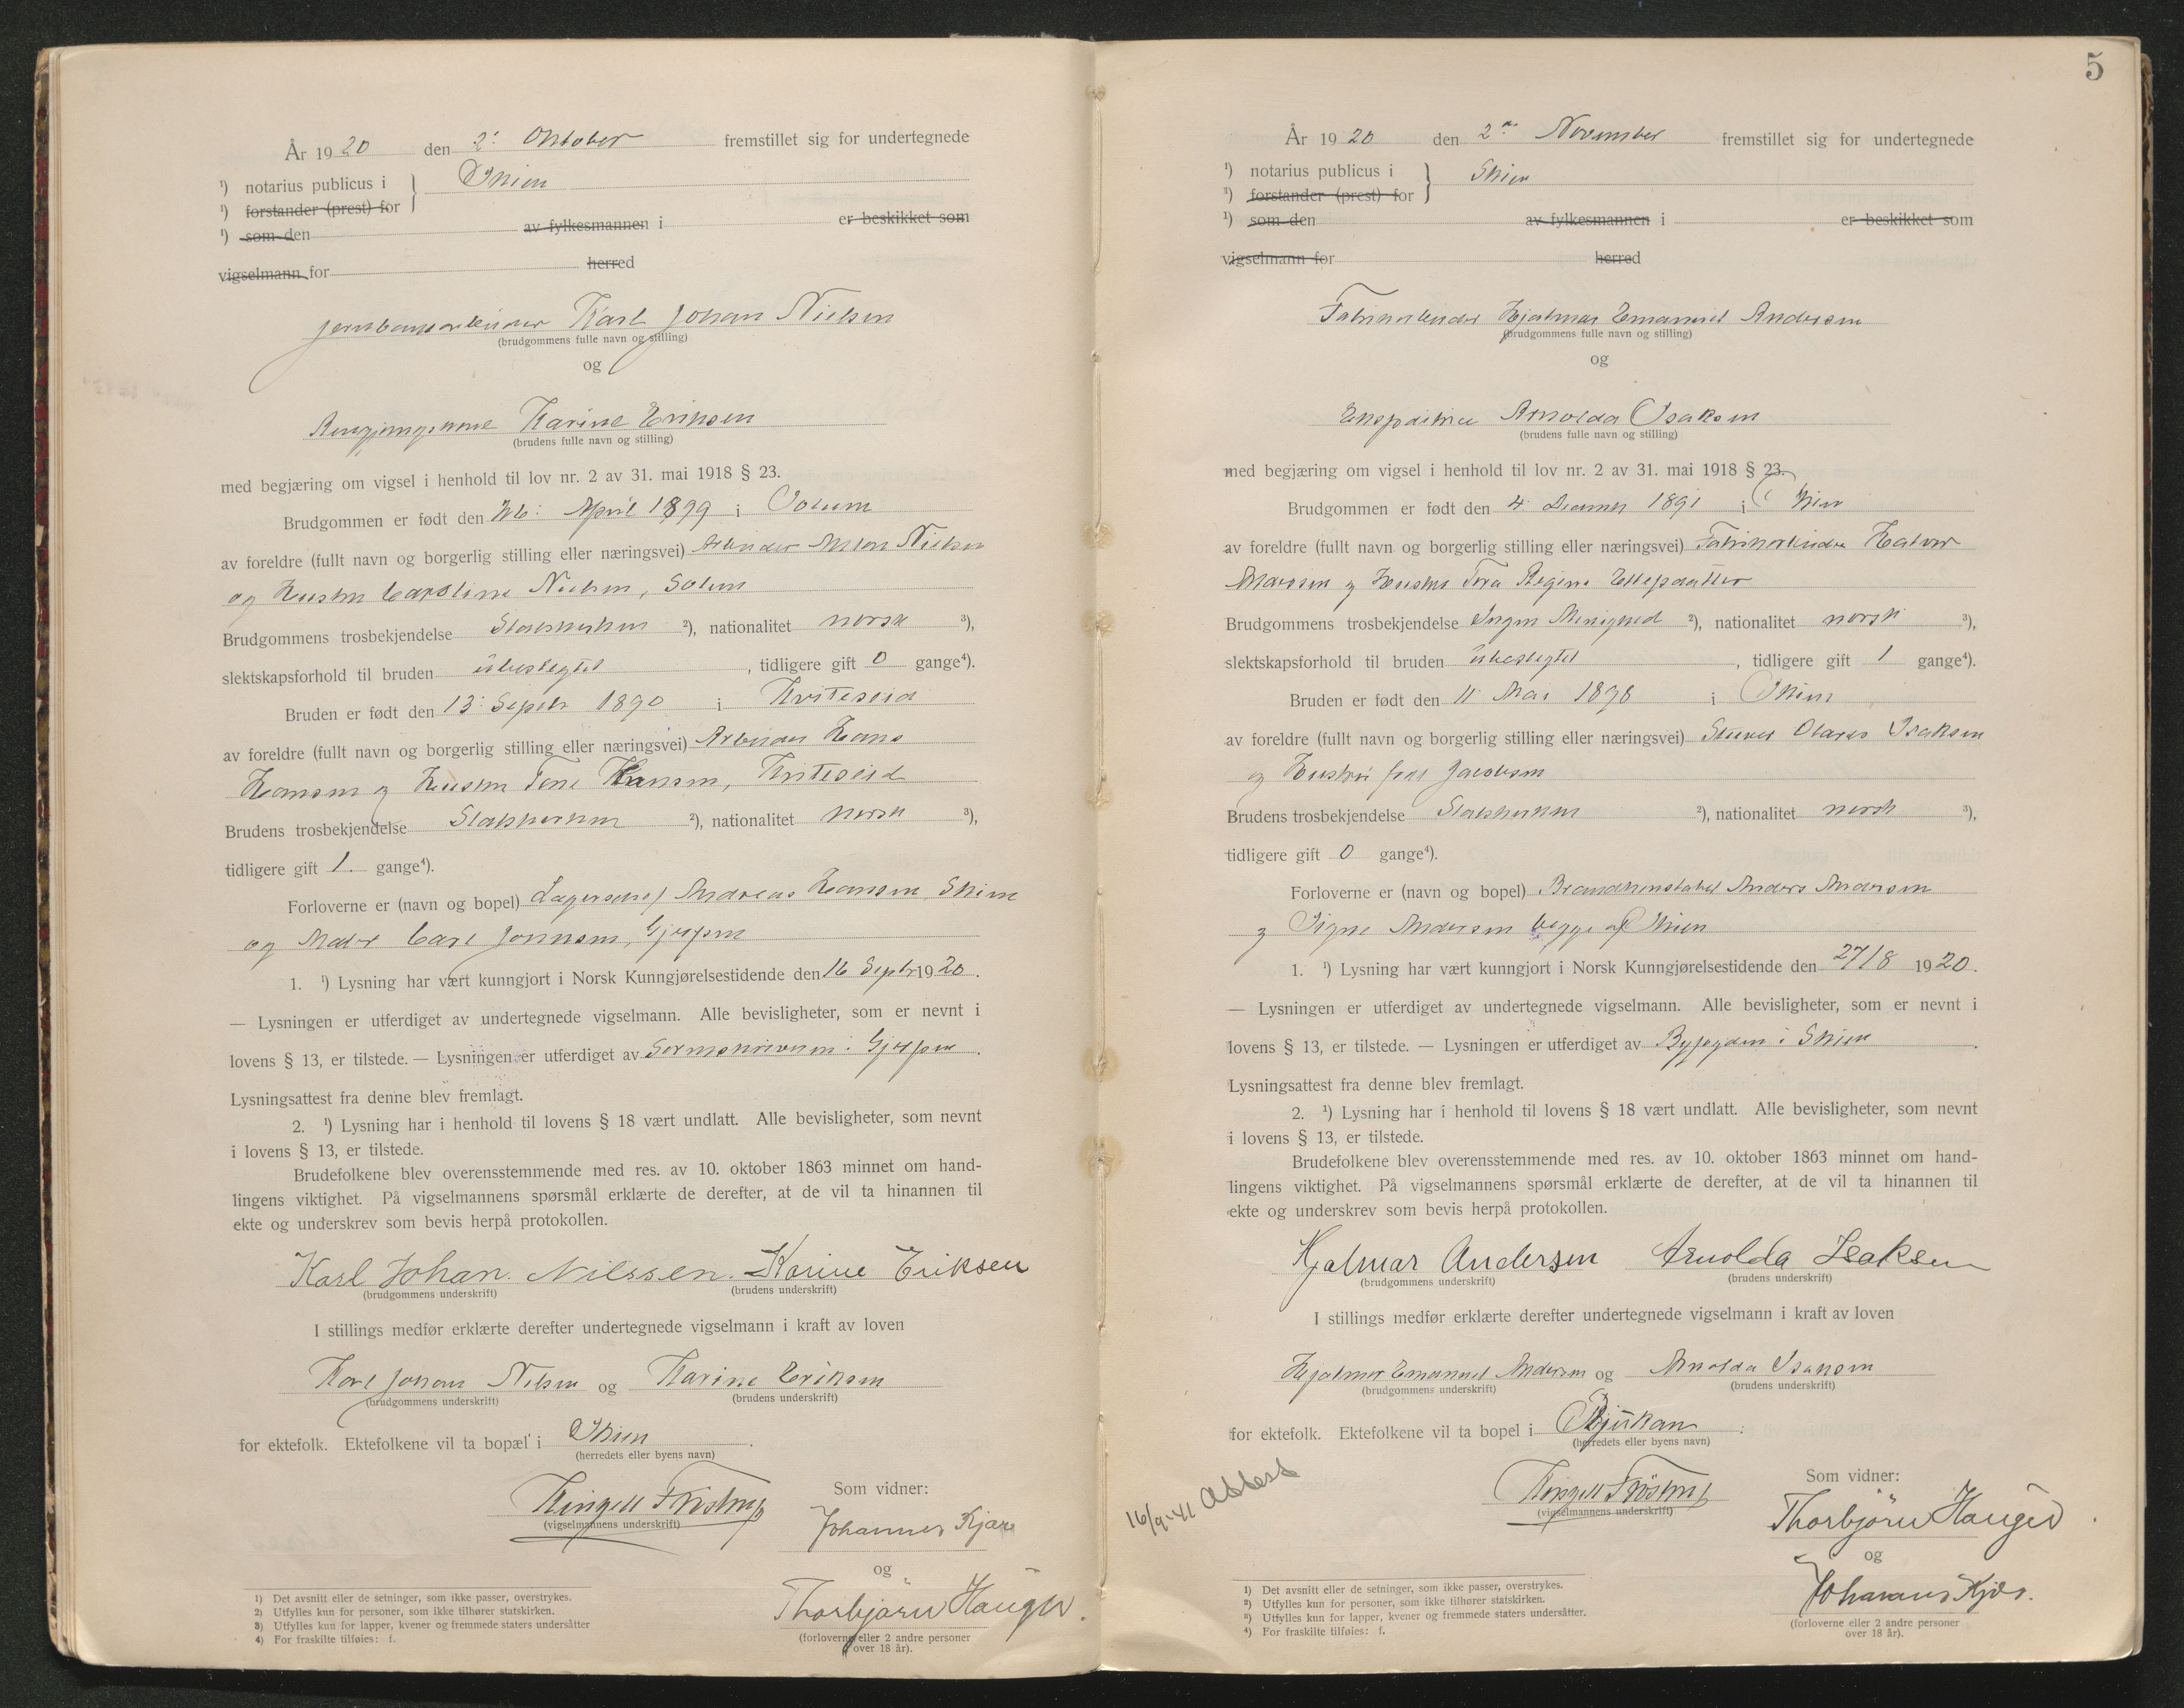 År 1920 den 2. Oktober fremstillet sig for undertegnede
¹) notarius publicus i Skien
¹) forstander (prest) for
¹) som den av fylkesmannen i er beskikket som
vigselmann for herred
Jernbanearbeider Karl Johan Nielsen
(brudgommens fulle navn og stilling)
og
Karine Eriksen
(brudens fulle navn og stilling)
med begjæring om vigsel i henhold til lov nr. 2 av 31. mai 1918 § 23.
Brudgommen er født den April 1899 i Solum
av foreldre (fullt navn og borgerlig stilling eller næringsvei) Arbeider Anton Nielsen
og Hustru Caroline Nielsen, Solum
Brudgommens trosbekjendelse Statskirken ²), nationalitet norsk ³),
slektskapsforhold til bruden ubeslegtet, tidligere gift 0 gange⁴).
Bruden er født den 13. Septbr 1890 i Kviteseid
av foreldre (fullt navn og borgerlig stilling eller næringsvei) Arbeider Hans
Hansen og Hustru Tone Hansen, Kviteseid
Brudens trosbekjendelse Statskirken ²), nationalitet norsk ³),
tidligere gift 1. gange⁴).
Forloverne er (navn og bopel) Andreas Hansen, Skien
og Carl Johnsen, Gjerpen
1. ¹) Lysning har vært kunngjort i Norsk Kunngjørelsestidende den 16 Septbr 1920.
— Lysningen er utferdiget av undertegnede vigselmann. Alle bevisligheter, som er nevnt i
lovens § 13, er tilstede. — Lysningen er utferdiget av Sorenskriveren i Gjerpen.
Lysningsattest fra denne blev fremlagt.
2. ¹) Lysning har i henhold til lovens § 18 vært undlatt. Alle bevisligheter, som nevnt
i lovens § 13, er tilstede.
Brudefolkene blev overensstemmende med res. av 10. oktober 1863 minnet om hand-
lingens viktighet. På vigselmannens spørsmål erklærte de derefter, at de vil ta hinannen til
ekte og underskrev som bevis herpå protokollen.
Karl Johan Nilssen. Karine Eriksen
(brudgommens underskrift) (brudens underskrift)
I stillings medfør erklærte derefter undertegnede vigselmann i kraft av loven
Karl Johan Nielsen og Karine Eriksen
(brudgommens underskrift) (brudens underskrift)
for ektefolk. Ektefolkene vil ta bopæl i Skien.
(herredets eller byens navn)
Som vidner:
Frøstrup
(vigselmannens underskrift)
Johannes Kjær
og
Thorbjørn Hauger.
(forloverne eller 2 andre personer
over 18 år).
1) Det avsnitt eller de setninger, som ikke passer, overstrykes.
2) Utfylles kun for personer, som ikke tilhører statskirken.
3) Utfylles kun for lapper, kvener og fremmede staters undersåtter
4) For fraskilte tilføies: f.
5
År 1920 den 2den November fremstillet sig for undertegnede
¹) notarius publicus i Skien
¹) forstander (prest) for
¹) som den av fylkesmannen i er beskikket som
vigselmann for herred
Fabrikarbeider Hjalmar Emanuel Andersen
(brudgommens fulle navn og stilling)
og
Ekspeditrice Arnolda Isaksen
(brudens fulle navn og stilling)
med begjæring om vigsel i henhold til lov nr. 2 av 31. mai 1918 § 23.
Brudgommen er født den 4. December 1891 i Skien
av foreldre (fullt navn og borgerlig stilling eller næringsvei) Fabrikarbeider Halvor
Andersen og Hustru Tora Regine
Brudgommens trosbekjendelse Ingen Menighed ²), nationalitet norsk ³),
slektskapsforhold til bruden ubeslegtet, tidligere gift 1 gange⁴).
Bruden er født den 11 Mai 1898 i Skien
av foreldre (fullt navn og borgerlig stilling eller næringsvei) Olaves Isaksen
og Hustru Jacobsen
Brudens trosbekjendelse Statskirken ²), nationalitet norsk ³),
tidligere gift 0 gange⁴).
Forloverne er (navn og bopel) Brandkonstabel Anders Andersen
og Signe Andersen begge af Skien
1. ¹) Lysning har vært kunngjort i Norsk Kunngjørelsestidende den 27/8 1920.
— Lysningen er utferdiget av undertegnede vigselmann. Alle bevisligheter, som er nevnt i
lovens § 13, er tilstede. — Lysningen er utferdiget av Byfogden i Skien.
Lysningsattest fra denne blev fremlagt.
2. ¹) Lysning har i henhold til lovens § 18 vært undlatt. Alle bevisligheter, som nevnt
i lovens § 13, er tilstede.
Brudefolkene blev overensstemmende med res. av 10. oktober 1863 minnet om hand-
lingens viktighet. På vigselmannens spørsmål erklærte de derefter, at de vil ta hinannen til
ekte og underskrev som bevis herpå protokollen.
Hjalmar Andersen Arnolda Isaksen
(brudgommens underskrift) (brudens underskrift)
I stillings medfør erklærte derefter undertegnede vigselmann i kraft av loven
Hjalmar Emanuel Andersen og Arnolda Isaksen
(brudgommens underskrift) (brudens underskrift)
for ektefolk. Ektefolkene vil ta bopel i Rjukan.
(herredets eller byens navn)
16/9-41 Attest
Som vidner:
Frøstrup
(vigselmannens underskrift)
Thorbjørn Hauger.
og
Johannes Kjær.
(forloverne eller 2 andre personer
over 18 år).
1) Det avsnitt eller de setninger, som ikke passer, overstrykes.
2) Utfylles kun for personer, som ikke tilhører statskirken.
3) Utfylles kun for lapper, kvener og fremmede staters undersåtter.
4) For fraskilte tilføies: f.